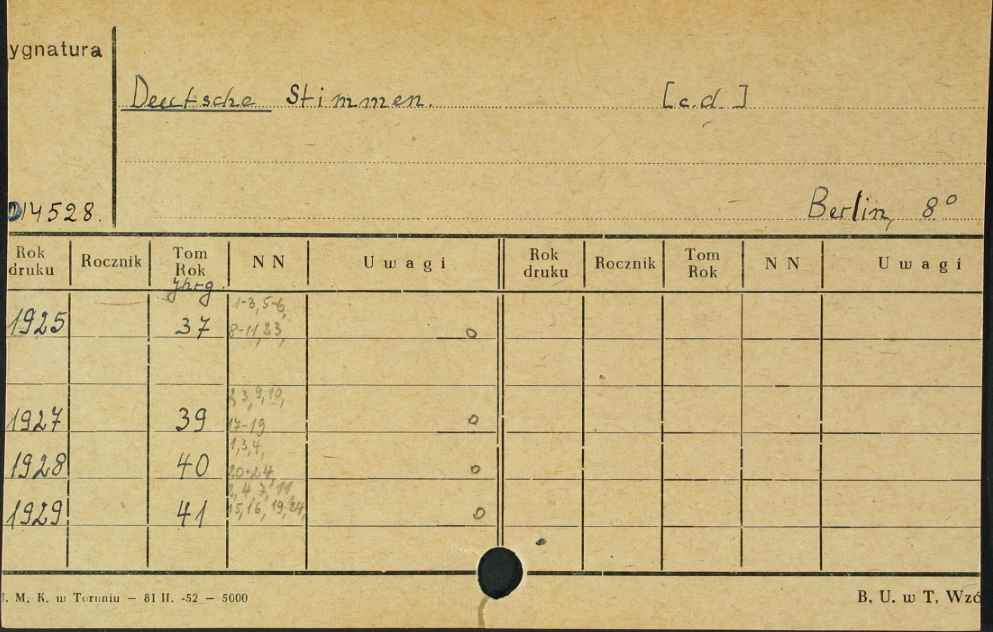 ygnatura
Deutsche Stimmen. [c.d.]
14528.
Berlin, 8°
Rok druku Rocznik Tom Rok NN Uwagi Rok druku Rocznik Tom Rok NN Uwagi
jhrg
1-3,5-6,
1925 37 8-11, o
3,9,10,
1927 39 17-19 o
1,3,4,
1928 40 20-24, o
1929 41 15,16,19,24, o
. M. K. w Toruniu — 81 II. -52 — 5000
B. U. w T. Wzó